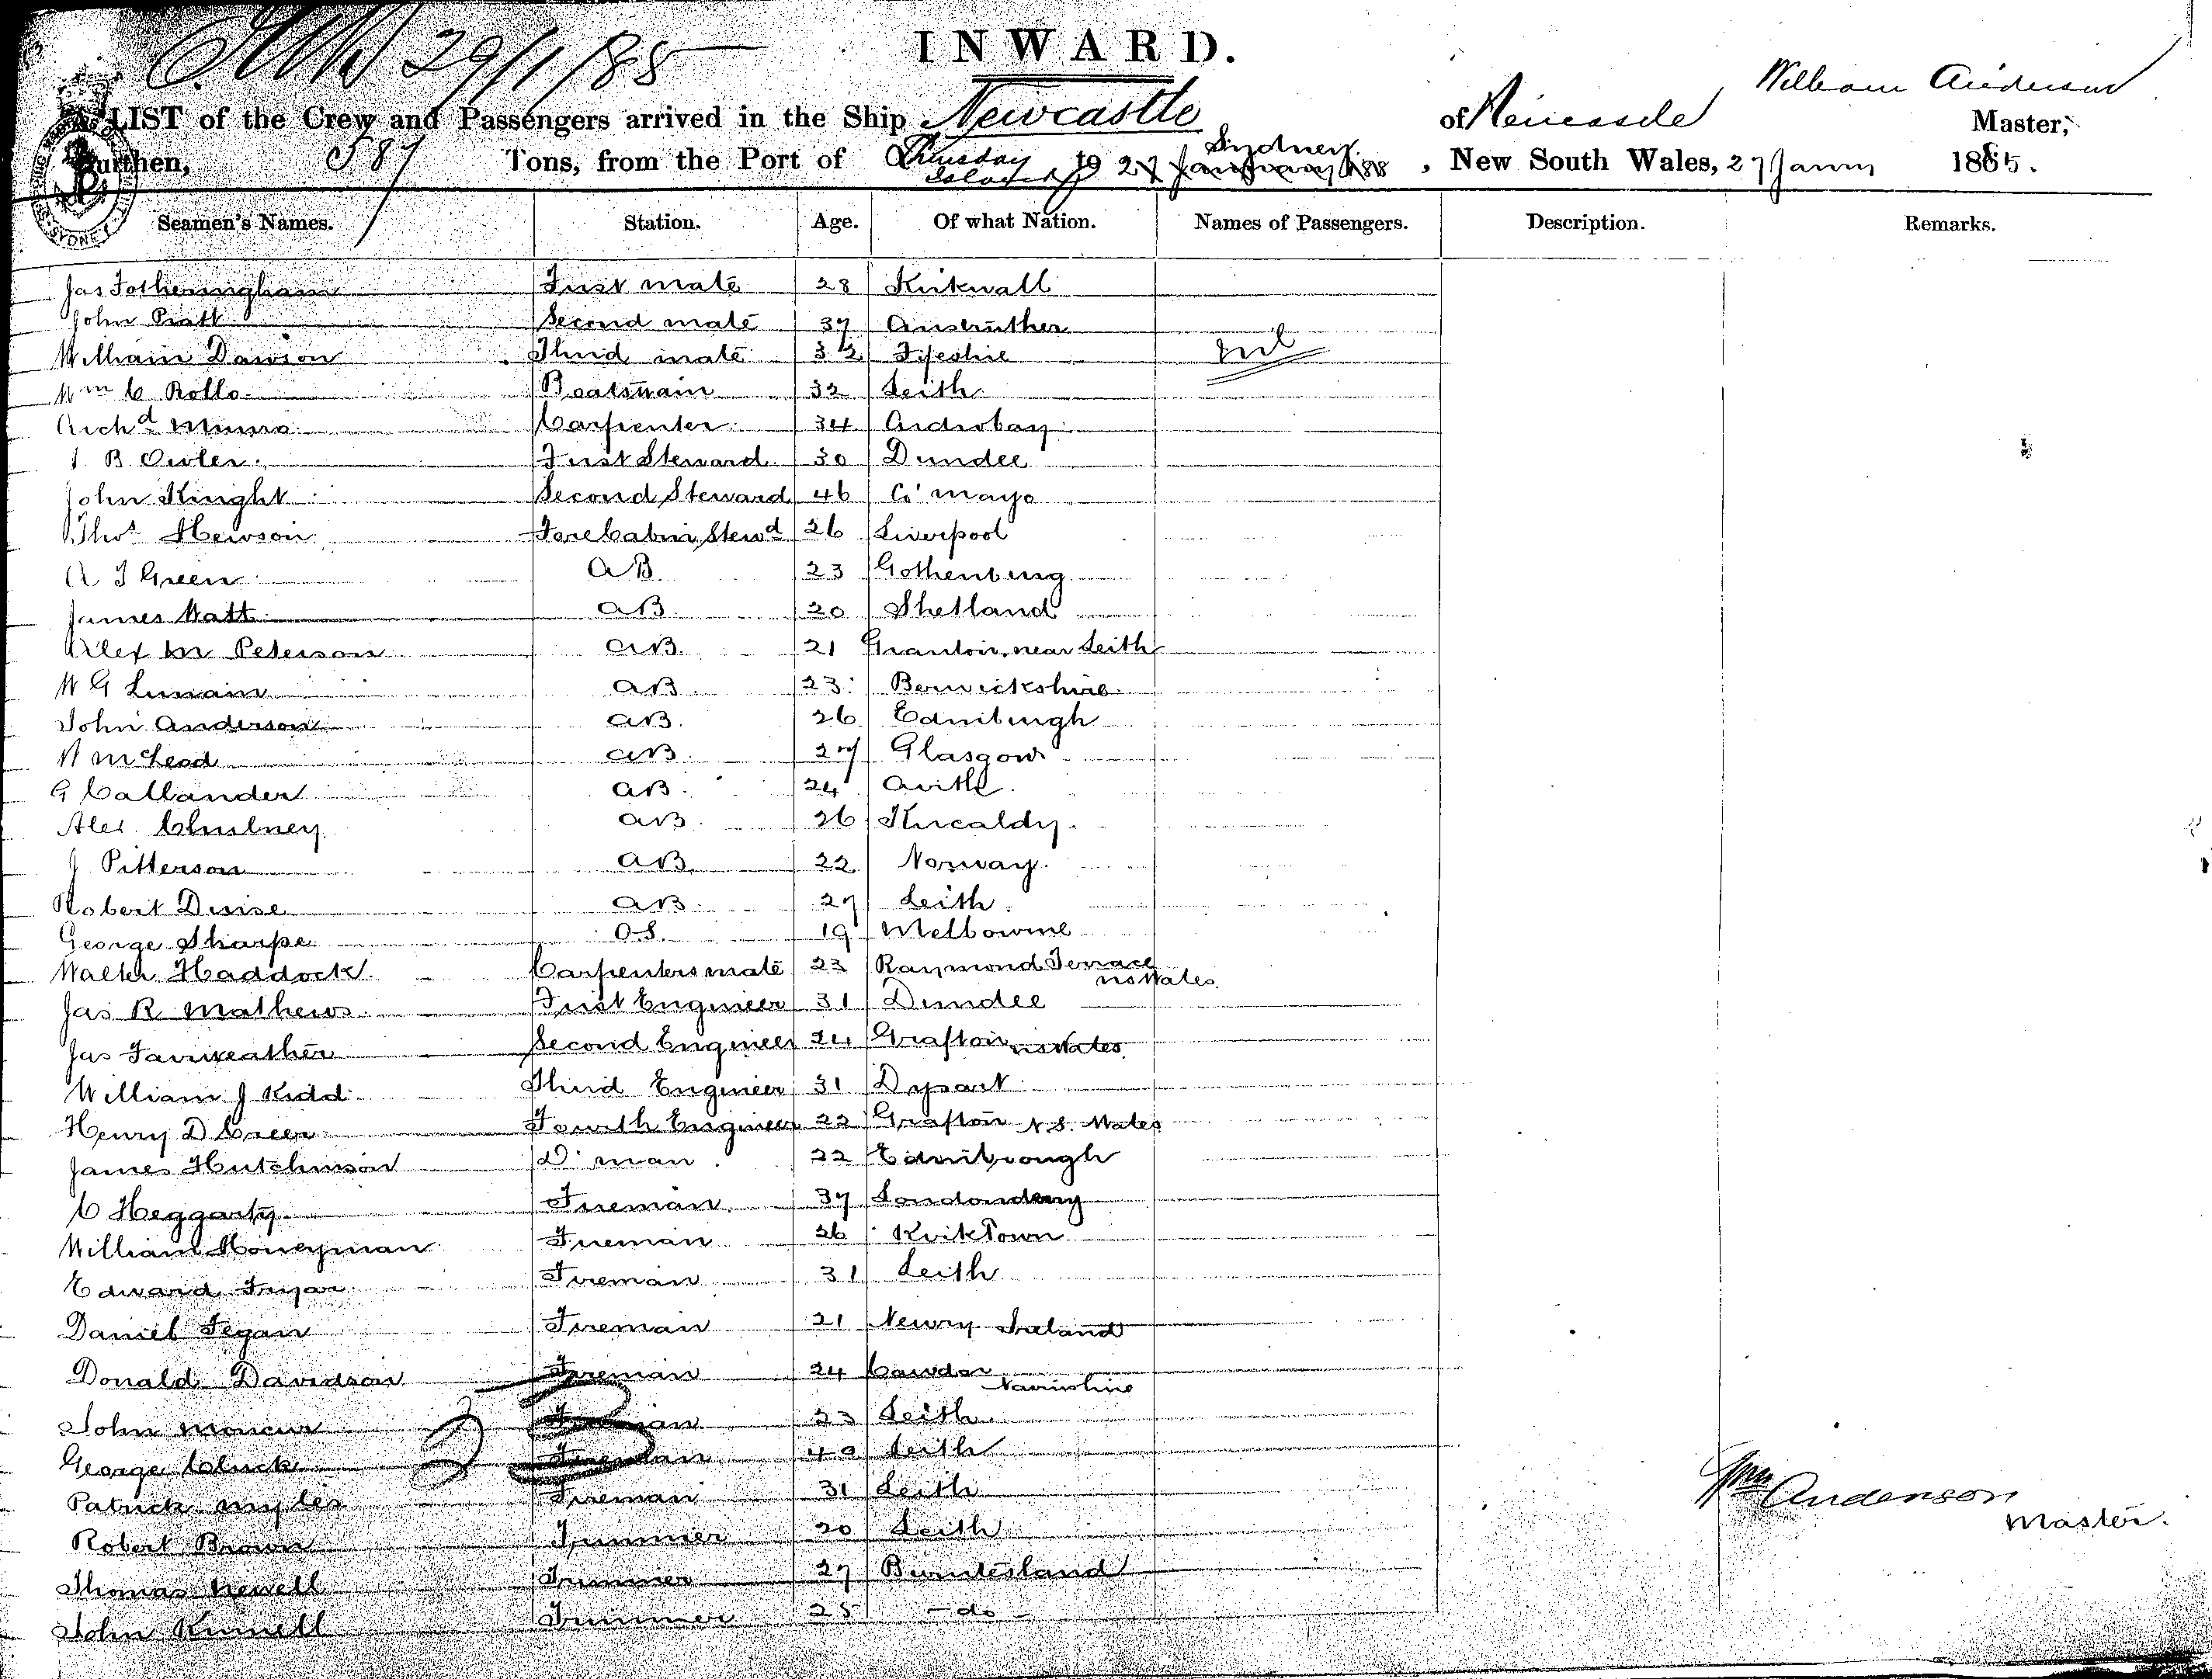 29/1/88
INWARD.
William Anderson
LIST of the Crew and Passengers arrived in the Ship Newcastle of Newcastle Master,
Burthen, 587 Tons, from the Port of Thursday Island to Sydney 27 January 1888, New South Wales, 27 Jany 1885.
Seamen's Names. Station. Age. Of what Nation. Names of Passengers. Description. Remarks.
Jas Fotheringham First mate 28 Kirkwall
John Pratt Second mate 37 Anstruther
William Dawson Third mate 32 Fifeshire nil
Wm C Rollo Boatswain 32 Leith
Archd Munro Carpenter 34 Ardrobay
J B Owler First Steward 30 Dundee
John Knight Second Steward 46 Co mayo
Thos Hewson Fore Cabin Stewd 26 Liverpool
A J Green AB 23 Gothenburg
James Watt AB 20 Shetland
Alex M Peterson AB 21 Granton near Leith
W G Lunain AB 23 Berwickshire
John Anderson AB 26 Edinburgh
W McLeod AB 27 Glasgow
G Callander AB 24 Avith
Alex AB 26 Kircaldy
J Pitterson AB 22 Norway
Robert AB 27 Leith
George Sharpe O.S. 19 Melbourne
Walter Haddock Carpenters mate 23 Raymond Terrace
NS Wales
Jas R Mathews First Engineer 31 Dundee
Jas Fairweather Second Engineer 24 Grafton NS Wales
William J Kidd Third Engineer 31 Dysart
Henry D Greer Fourth Engineer 22 Grafton N.S. Wales
James Hutchinson D' man 22 Edinbrough
C Heggarty Fireman 37 Londonderry
William Honeyman Fireman 26 KirkTown
Edward Fryar Fireman 31 Leith
Daniel Fegan Fireman 21 Newry Ireland
Donald Davidson Fireman 24 Cawdor
Nairnshire
John Moncur Fireman 23 Leith
George Cluck Fireman 40 Leith
Patrick Myles Fireman 31 Leith
Wm Anderson
Master.
Robert Brown Trimmer 20 Leith
Thomas Newell Trimmer 27 Burntisland
John Kinnell Trimmer 25 - do -